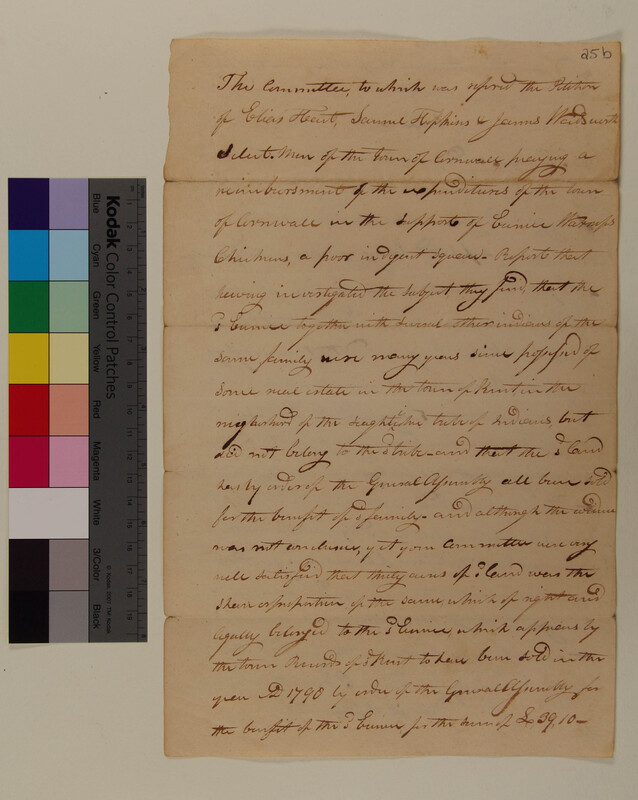 25b
The Committee, to which was refered the Petition
of Elias Heart, Samuel Hopkins & James Wadsworth
Select Men of the Town of Cornwall praying a
reimbursment of the expenditures of the town
of Cornwall in the support of Eunice
Chickens, a poor indigent squaw - Report that
haveing investigated the subject they find, that the
sd Eunice together with several other indians of the
same family were many years since possessed of
some real estate in the town of Kent in the
neighborhood of the tribe of Indians, but
did not belong to the sd tribe - and that the sd land
has by order of the General Assembly all been sold
for the benefit of sd family - and although the evidence
was not conclusive, yet your Committee were very
well satisfied that thirty acres of sd land was the
share or proportion of the same, which of right and
equity belonged to the sd Eunice, which appears by
the town Records of sd Kent to have been sold in the
year AD 1798 by order of the General Assembly for
the benefit of the sd Eunice for the sum of £39,10 -
Kodak Color Control Patches
Blue
Cyan
Green
Yellow
Red
Magenta
White
3/Color
Black